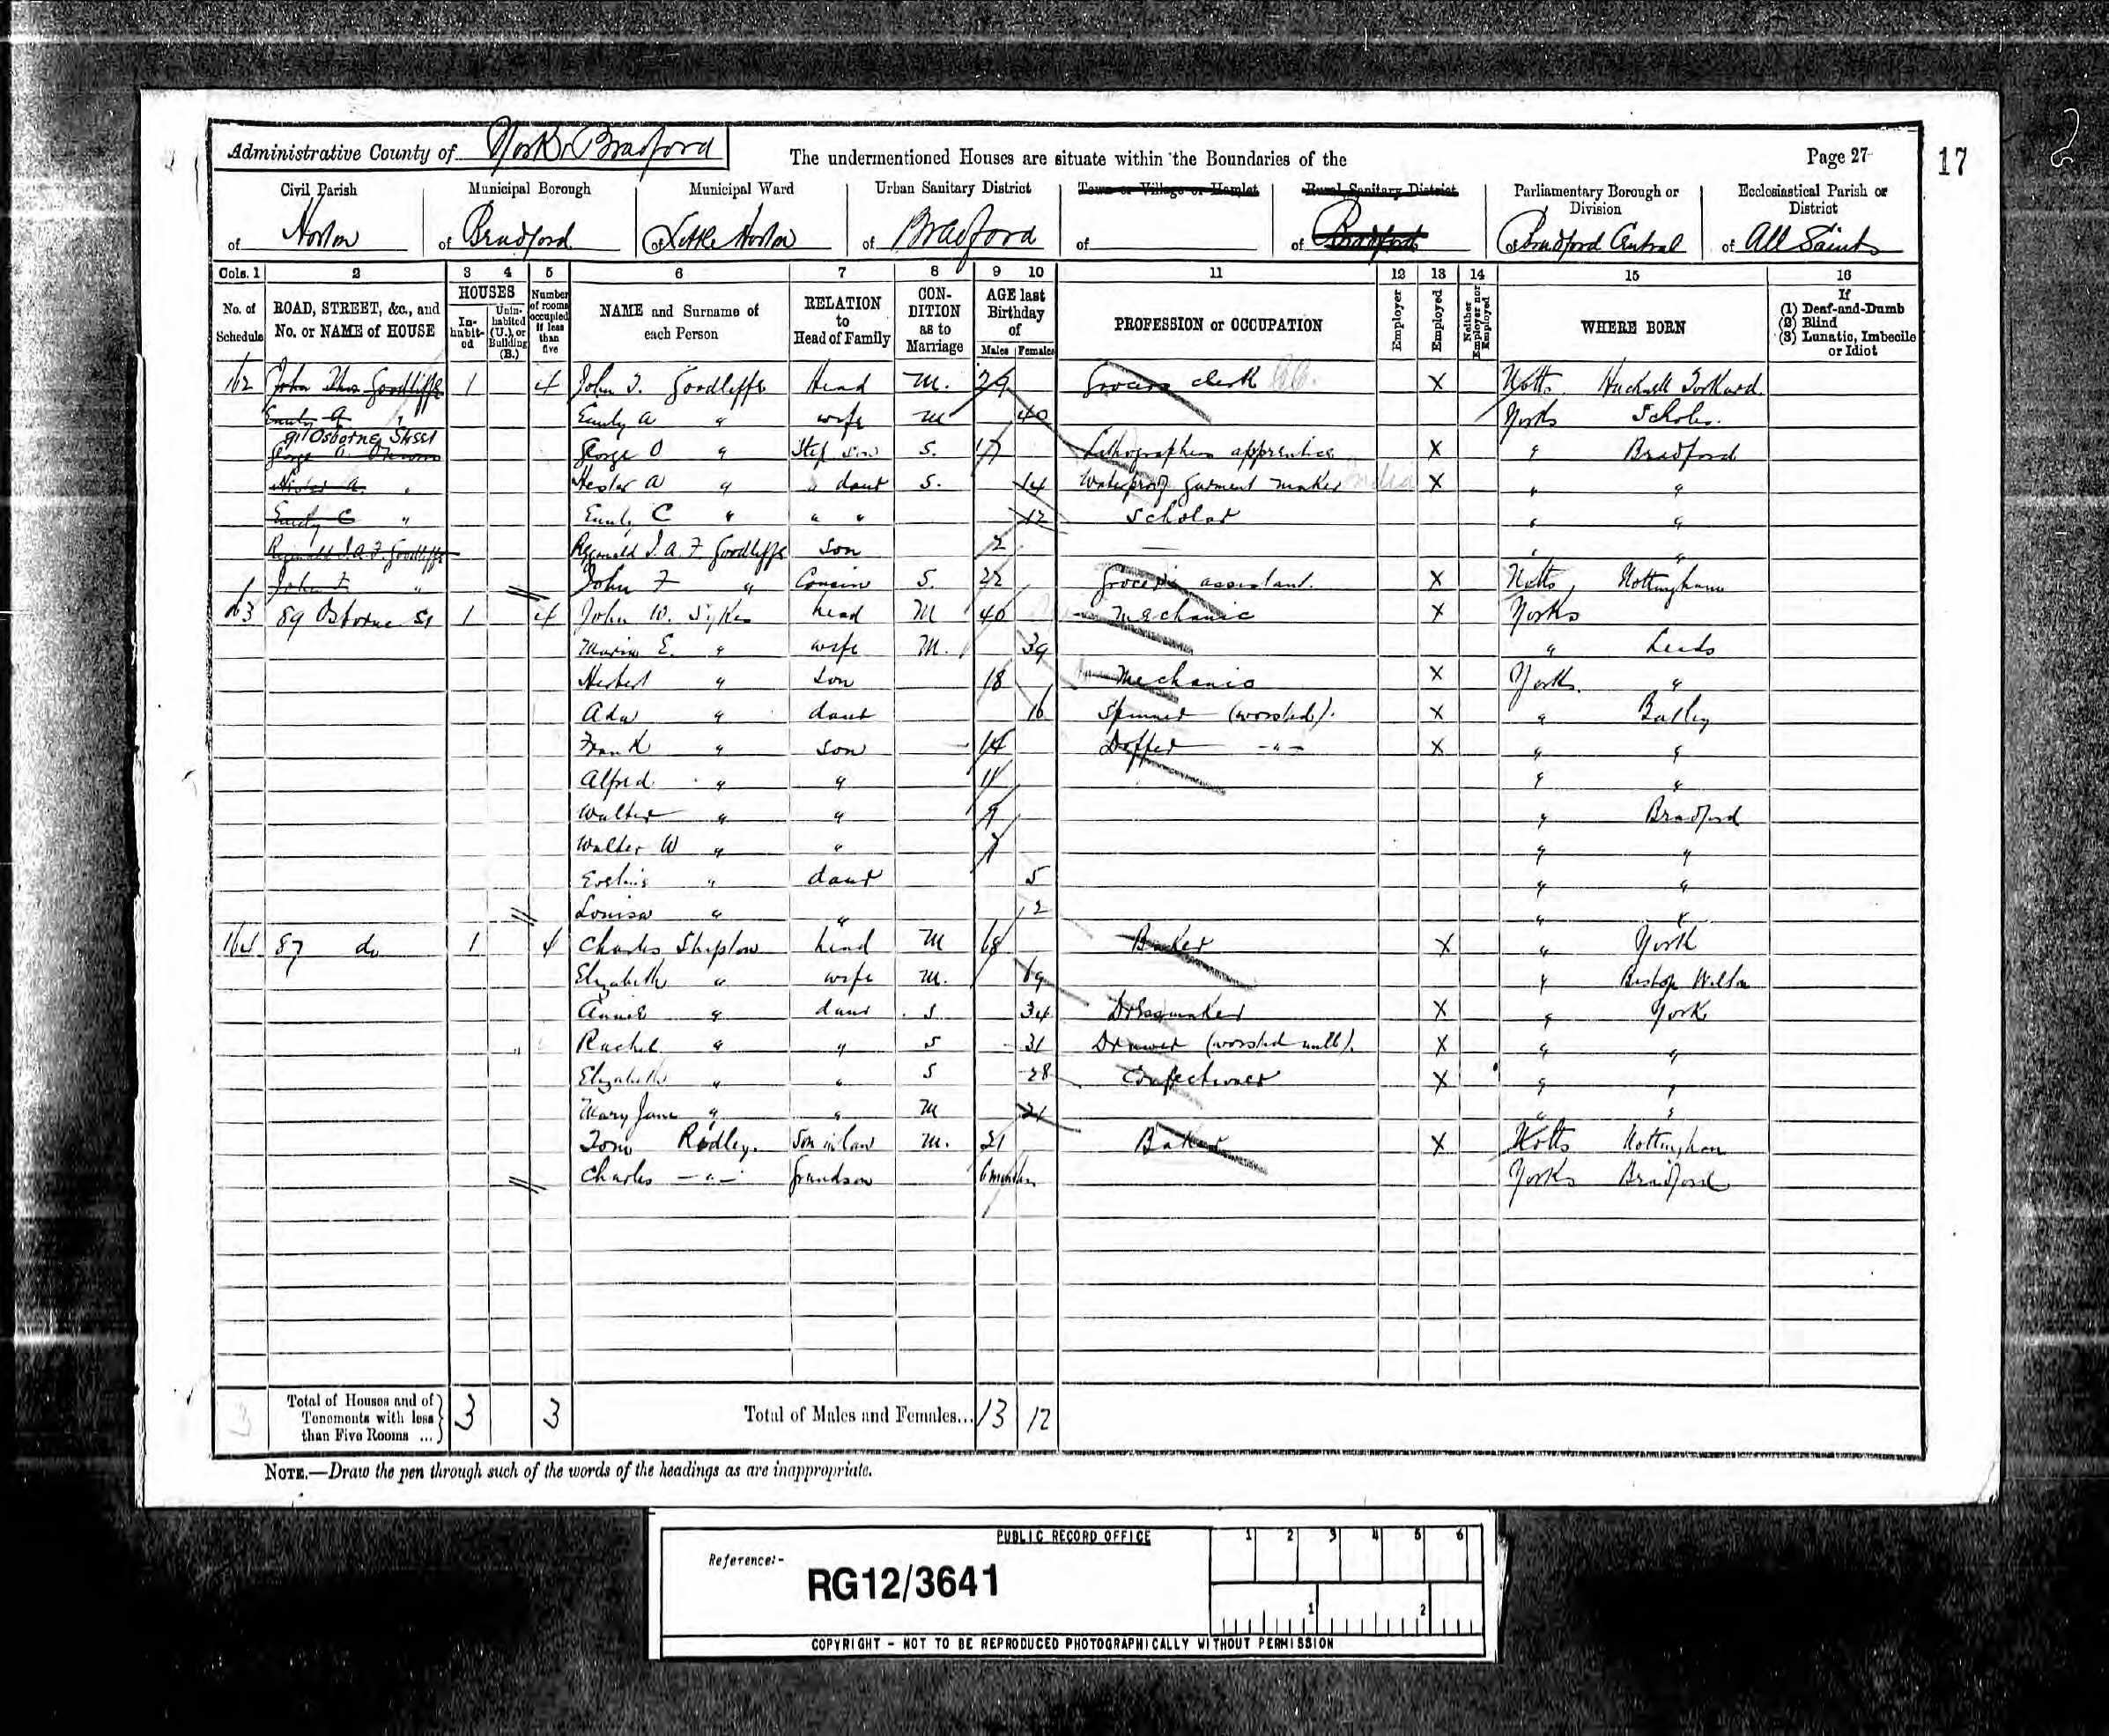 Administrative County of Yorks Bradford The undermentioned Houses are situate within the Boundaries of the Page 27 17
Civil Parish Municipal Borough Municipal Ward Urban Sanitary District Town or Village or Hamlet Rural Sanitary District Parliamentary Borough or Division Ecclesiastical Parish or District
of Horton of Bradford of Little Horton of Bradford of of Bradford of Bradford Central of All Saints
Cols. 1 2 3 4 5 6 7 8 9 10 11 12 13 14 15 16
No. of Schedule ROAD, STREET, &c., and No. or NAME of HOUSE HOUSES Inhabited Uninhabited (U.), or Building (B.) Number of rooms occupied if less than five NAME and Surname of each Person RELATION to Head of Family CONDITION as to Marriage AGE last Birthday of Males Females PROFESSION or OCCUPATION Employer Employed Neither Employer nor Employed WHERE BORN If (1) Deaf-and-Dumb (2) Blind (3) Lunatic, Imbecile or Idiot
162 John Thos Goodliffe 1 4 John T. Goodliffe Head M. 29 Grocers clerk X Notts Hucknall Torkard
Emily A " Emily A " wife M 40 Yorks Scholes
91 Osborne Street
George O George O " Step son S. 17 Lithographers apprentice X " Bradford
Hester A. " Hester A " " daur S. 14 Waterproof Garment maker India X " "
Emily C " Emily C " " " 12 Scholar " "
Reginald J. A. F. Goodliffe Reginald J. A. F. Goodliffe Son 2 — " "
John F " John F " Cousin S. 22 Grocer's assistant. X Notts Nottingham
163 89 Osborne St 1 4 John W. Sykes head M 40 Mechanic X Yorks
E. " wife M. 39 " Leeds
Herbert " Son 18 Mechanic X Yorks. "
Ada " daur 16 Spinner (worsted). X " Batley
Frank " Son 14 Doffer -"- X " "
Alfred " " 11 " "
Walter " " 9 " Bradford
Walter W " " 7 " "
" daur 5 " "
Louisa " " 2 " "
164 87 do 1 4 Charles head M 68 Baker X " York
Elizabeth " wife M. 69 " Bishop Wilton
Annie " daur S 34 Dressmaker X " York
Rachel " " S 31 Drawer (worsted mill). X " "
Elizabeth " " S 28 Confectioner X " "
Mary Jane " " M 21 " "
Tom Rodley. Son in law M. 21 Baker X Notts Nottingham
Charles -"- Grandson 6 months Yorks Bradford
3 Total of Houses and of Tenements with less than Five Rooms ... 3 3 Total of Males and Females... 13 12
NOTE.—Draw the pen through such of the words of the headings as are inappropriate.
PUBLIC RECORD OFFICE 1 2 3 4 5 6
Reference:-
RG12/3641
1 2
COPYRIGHT - NOT TO BE REPRODUCED PHOTOGRAPHICALLY WITHOUT PERMISSION